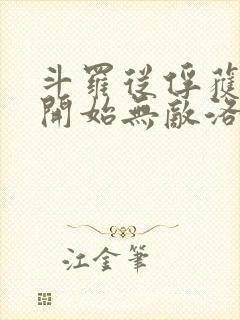 斗羅從俘獲
開始無敵洛
江金筆